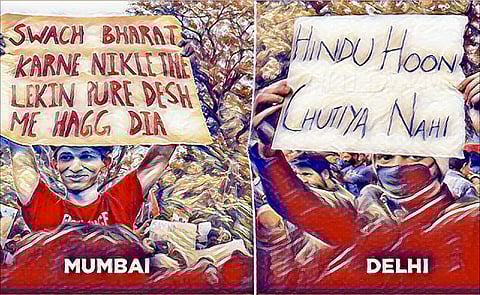 SWACH BHARAT
KARNE NIKLE THE
LEKIN PURE DESH
ME HAGG DIA
MUMBAI
HINDU HOON
CHUTIYA NAHI
DELHI